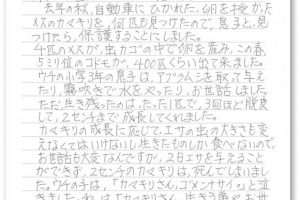 去年の秋、自動車にひかれた、卵を授かった
メスのカマキリを、何匹か見つけたので、息子と、見
つけたら、保護することにしました。
4匹のメスが、虫カゴの中で卵を産み、この春、
5ミリ位のコドモが、400匹くらい出て来ました。
ウチの小学3年の息子は、アブラムシを取って与え
たり、霧吹きで水をやったり、お世話しました。
ただ、生き残ったのは、たった1匹で、3回ほど脱皮
して、2センチまで成長してくれました。
カマキリの成長に応じて、エサの虫の大きさも変
えなくてはいけないし、生きたものしか食べないので、
お世話も大変なんですが、2日エサを与えること
ができず、2センチのカマキリは、死んでしまいまし
た。ウチの子は、「カマキリさん、ゴメンサイ」と泣
きました。私は「カマキリさん、生きる事やお世